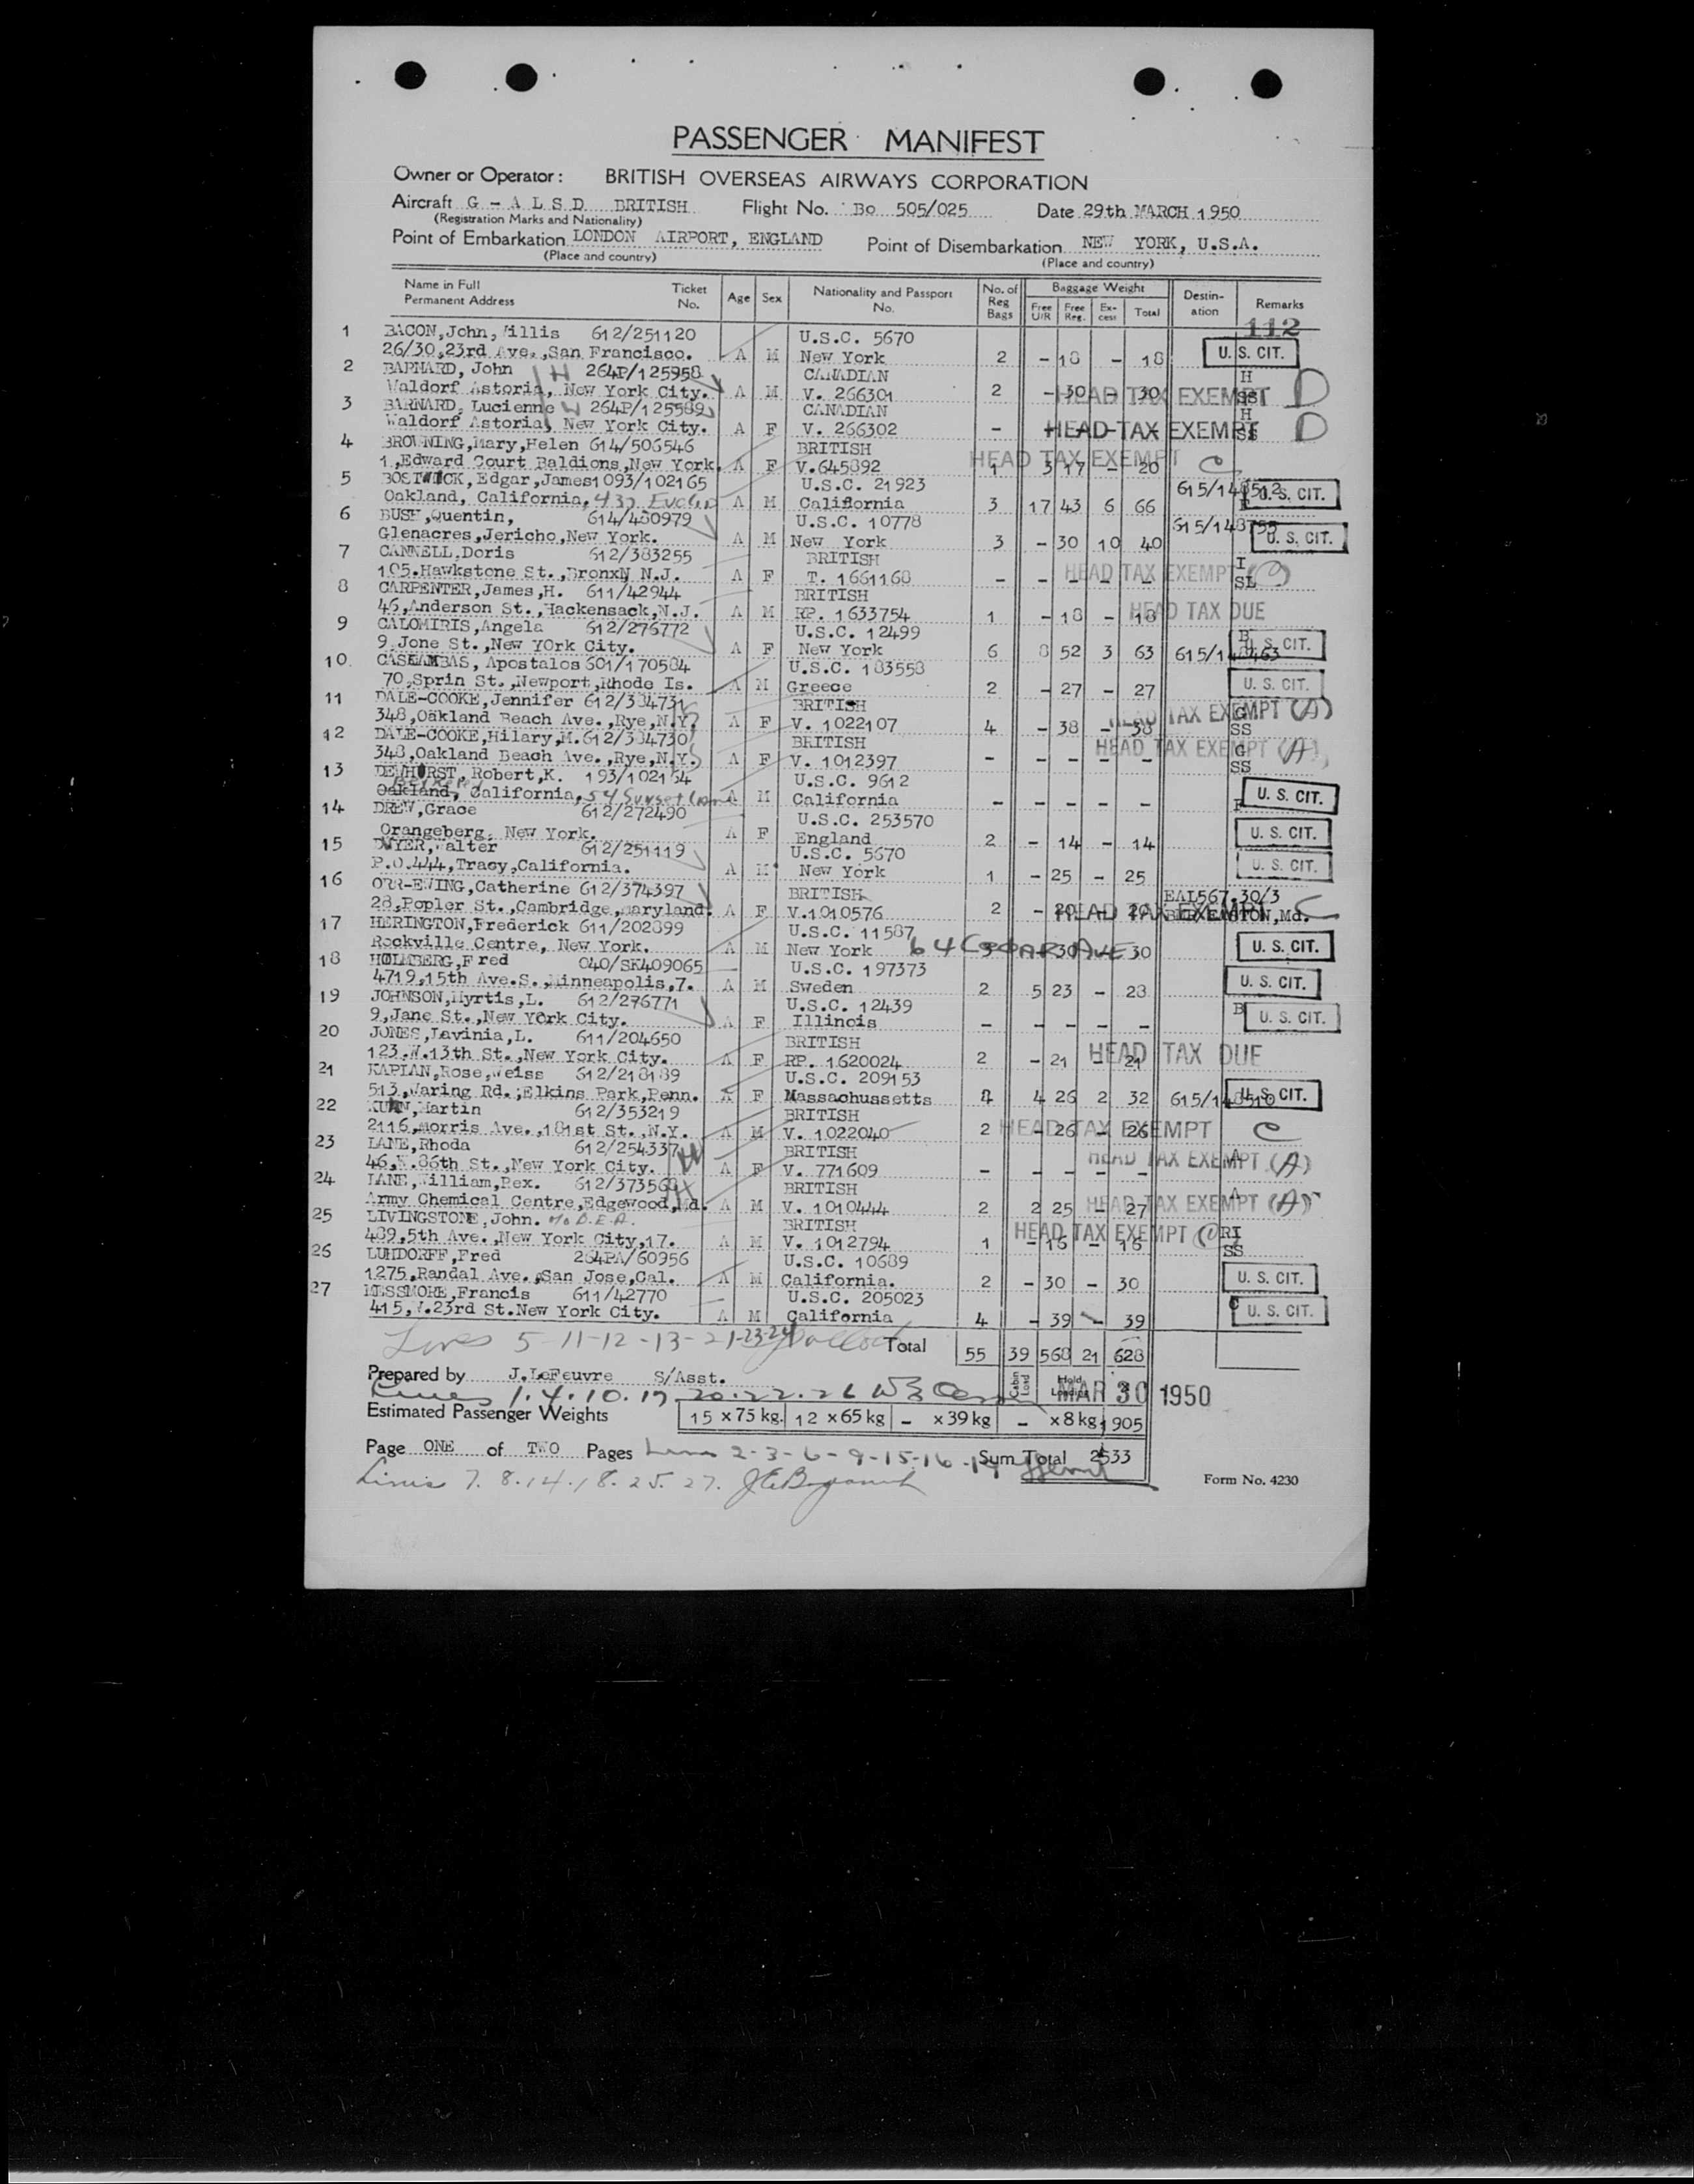 PASSENGER MANIFEST
Owner or Operator: BRITISH OVERSEAS AIRWAYS CORPORATION
Aircraft G - A L S D BRITISH Flight No. Bo 505/025 Date 29th MARCH 1950
(Registration Marks and Nationality)
Point of Embarkation LONDON AIRPORT, ENGLAND Point of Disembarkation NEW YORK, U.S.A.
(Place and country) (Place and country)
Name in Full Ticket Age Sex Nationality and Passport No. of Baggage Weight Destin- Remarks
Permanent Address No. No. Reg Bags Free U/R Free Reg. Ex-cess Total ation
112
1 BACON,John,Willis 612/251120 U.S.C. 5670
26/30,23rd Ave.,San Francisco. A M New York 2 - 18 - 18 U. S. CIT.
2 BARNARD, John H 264P/125958 CANADIAN H
Waldorf Astoria, New York City. A M V. 266301 2 - 30 - 30 HEAD TAX EXEMPT SS D
3 BARNARD, Lucienne W 264P/125589 CANADIAN H
Waldorf Astoria, New York City. A F V. 266302 - HEAD TAX EXEMPT SS D
4 BROWNING,Mary,Helen 614/506546 BRITISH
1,Edward Court Baldions,New York. A F V.645892 1 3 17 - 20 HEAD TAX EXEMPT C
5 BOSTWICK, Edgar,James1093/102165 U.S.C. 21923 615/148512
Oakland, California, A M California 3 17 43 6 66 U. S. CIT.
6 BUSH,Quentin, 614/480979 U.S.C. 10778 615/148755
Glenacres,Jericho,New York. A M New York 3 - 30 10 40 U. S. CIT.
7 CANNELL.Doris 612/383255 BRITISH I
105.Hawkstone St.,BronxN N.J. A F T. 1661168 - - - - - HEAD TAX EXEMPT SL C
8 CARPENTER,James,H. 611/42944 BRITISH
46,Anderson St.,Hackensack,N.J. A M RP. 1633754 1 - 18 - 18 HEAD TAX DUE
9 CALOMIRIS,Angela 612/276772 U.S.C. 12499 B
9 Jone St.,New YOrk City. A F New York 6 8 52 3 63 615/148463 U. S. CIT.
10. CASKAMBAS, Apostalos 601/170584 U.S.C. 183558
70,Sprin St.,Newport,Rhode Is. A M Greece 2 - 27 - 27 U. S. CIT.
11 DALE-COOKE,Jennifer 612/304731 BRITISH G
348,Oakland Beach Ave.,Rye,N.Y. A F V. 1022107 4 - 38 - 38 HEAD TAX EXEMPT SS (A)
12 DALE-COOKE,Hilary,M.612/304730 BRITISH G
348,Oakland Beach Ave.,Rye,N.Y. A F V. 1012397 - - - - - HEAD TAX EXEMPT SS (A)
13 DEWHURST, Robert,K. 193/102164 U.S.C. 9612
Oakland, California, 54 Sunset Lane A M California - - - - - U. S. CIT.
14 DREW,Grace 612/272490 U.S.C. 253570
Orangeberg, New York. A F England 2 - 14 - 14 U. S. CIT.
15 DWYER,Walter 612/251119 U.S.C. 5670
P.O.444,Tracy,California. A M New York 1 - 25 - 25 U. S. CIT.
16 ORR-EWING,Catherine 612/374397 BRITISH EAL567.30/3
28,Popler St.,Cambridge,Maryland. A F V.1010576 2 - 20 - 20 HEAD TAX EXEMPT EASTON,Md. C
17 HERINGTON,Frederick 611/202899 U.S.C. 11587
Rockville Centre, New York. A M New York 64 CEDAR AVE 3 30 30 U. S. CIT.
18 HOLMBERG,Fred 040/SK409065 U.S.C. 197373
4719,15th Ave.S.,Minneapolis,7. A M Sweden 2 5 23 - 28 U. S. CIT.
19 JOHNSON,Myrtis,L. 612/276771 U.S.C. 12439
9,Jane St.,New York City. A F Illinois - - - - - B U. S. CIT.
20 JONES,Lavinia,L. 611/204650 BRITISH
123.W.13th St.,New York City. A F RP. 1620024 2 - 21 - 21 HEAD TAX DUE
21 KAPLAN,Rose,Weiss 612/218189 U.S.C. 209153
513,Waring Rd.;Elkins Park,Penn. A F Massachussetts 4 4 26 2 32 615/148510 U. S. CIT.
22 Martin 612/353219 BRITISH
2116,Morris Ave.,181st St.,N.Y. A M V. 1022040 2 - 26 - 26 HEAD TAX EXEMPT C
23 LANE,Rhoda 612/254337 W BRITISH A
46,W.86th St.,New York City. A F V. 771609 - - - - - HEAD TAX EXEMPT (A)
24 LANE,William,Rex. 612/373568 H BRITISH A
Army Chemical Centre,Edgewood,Md. A M V. 1010444 2 2 25 - 27 HEAD TAX EXEMPT (A)
25 LIVINGSTONE,John. BRITISH RI
489,5th Ave.,New York City,17. A M V. 1012794 1 - 16 - 16 HEAD TAX EXEMPT SS (C)
26 LUHDORFF,Fred 264PA/60956 U.S.C. 10689
1275,Randal Ave.,San Jose,Cal. A M California. 2 - 30 - 30 U. S. CIT.
27 MESSMORE,Francis 611/42770 U.S.C. 205023
415,W.23rd St.New York City. A M California 4 - 39 - 39 C U. S. CIT.
Lines 5-11-12-13-21-23-24 Total 55 39 568 21 628
Prepared by J.LeFeuvre S/Asst. Cabin Load Hold Loading MAR 30 1950
Lines 1.4.10.17.20.22.26
Estimated Passenger Weights 15 x 75 kg. 12 x 65 kg - x 39 kg - x 8 kg 1905
Page ONE of TWO Pages Lines 2-3-6-9-15-16-19 Sum Total 2533
Lines 7.8.14.18.25.27.
Form No. 4230